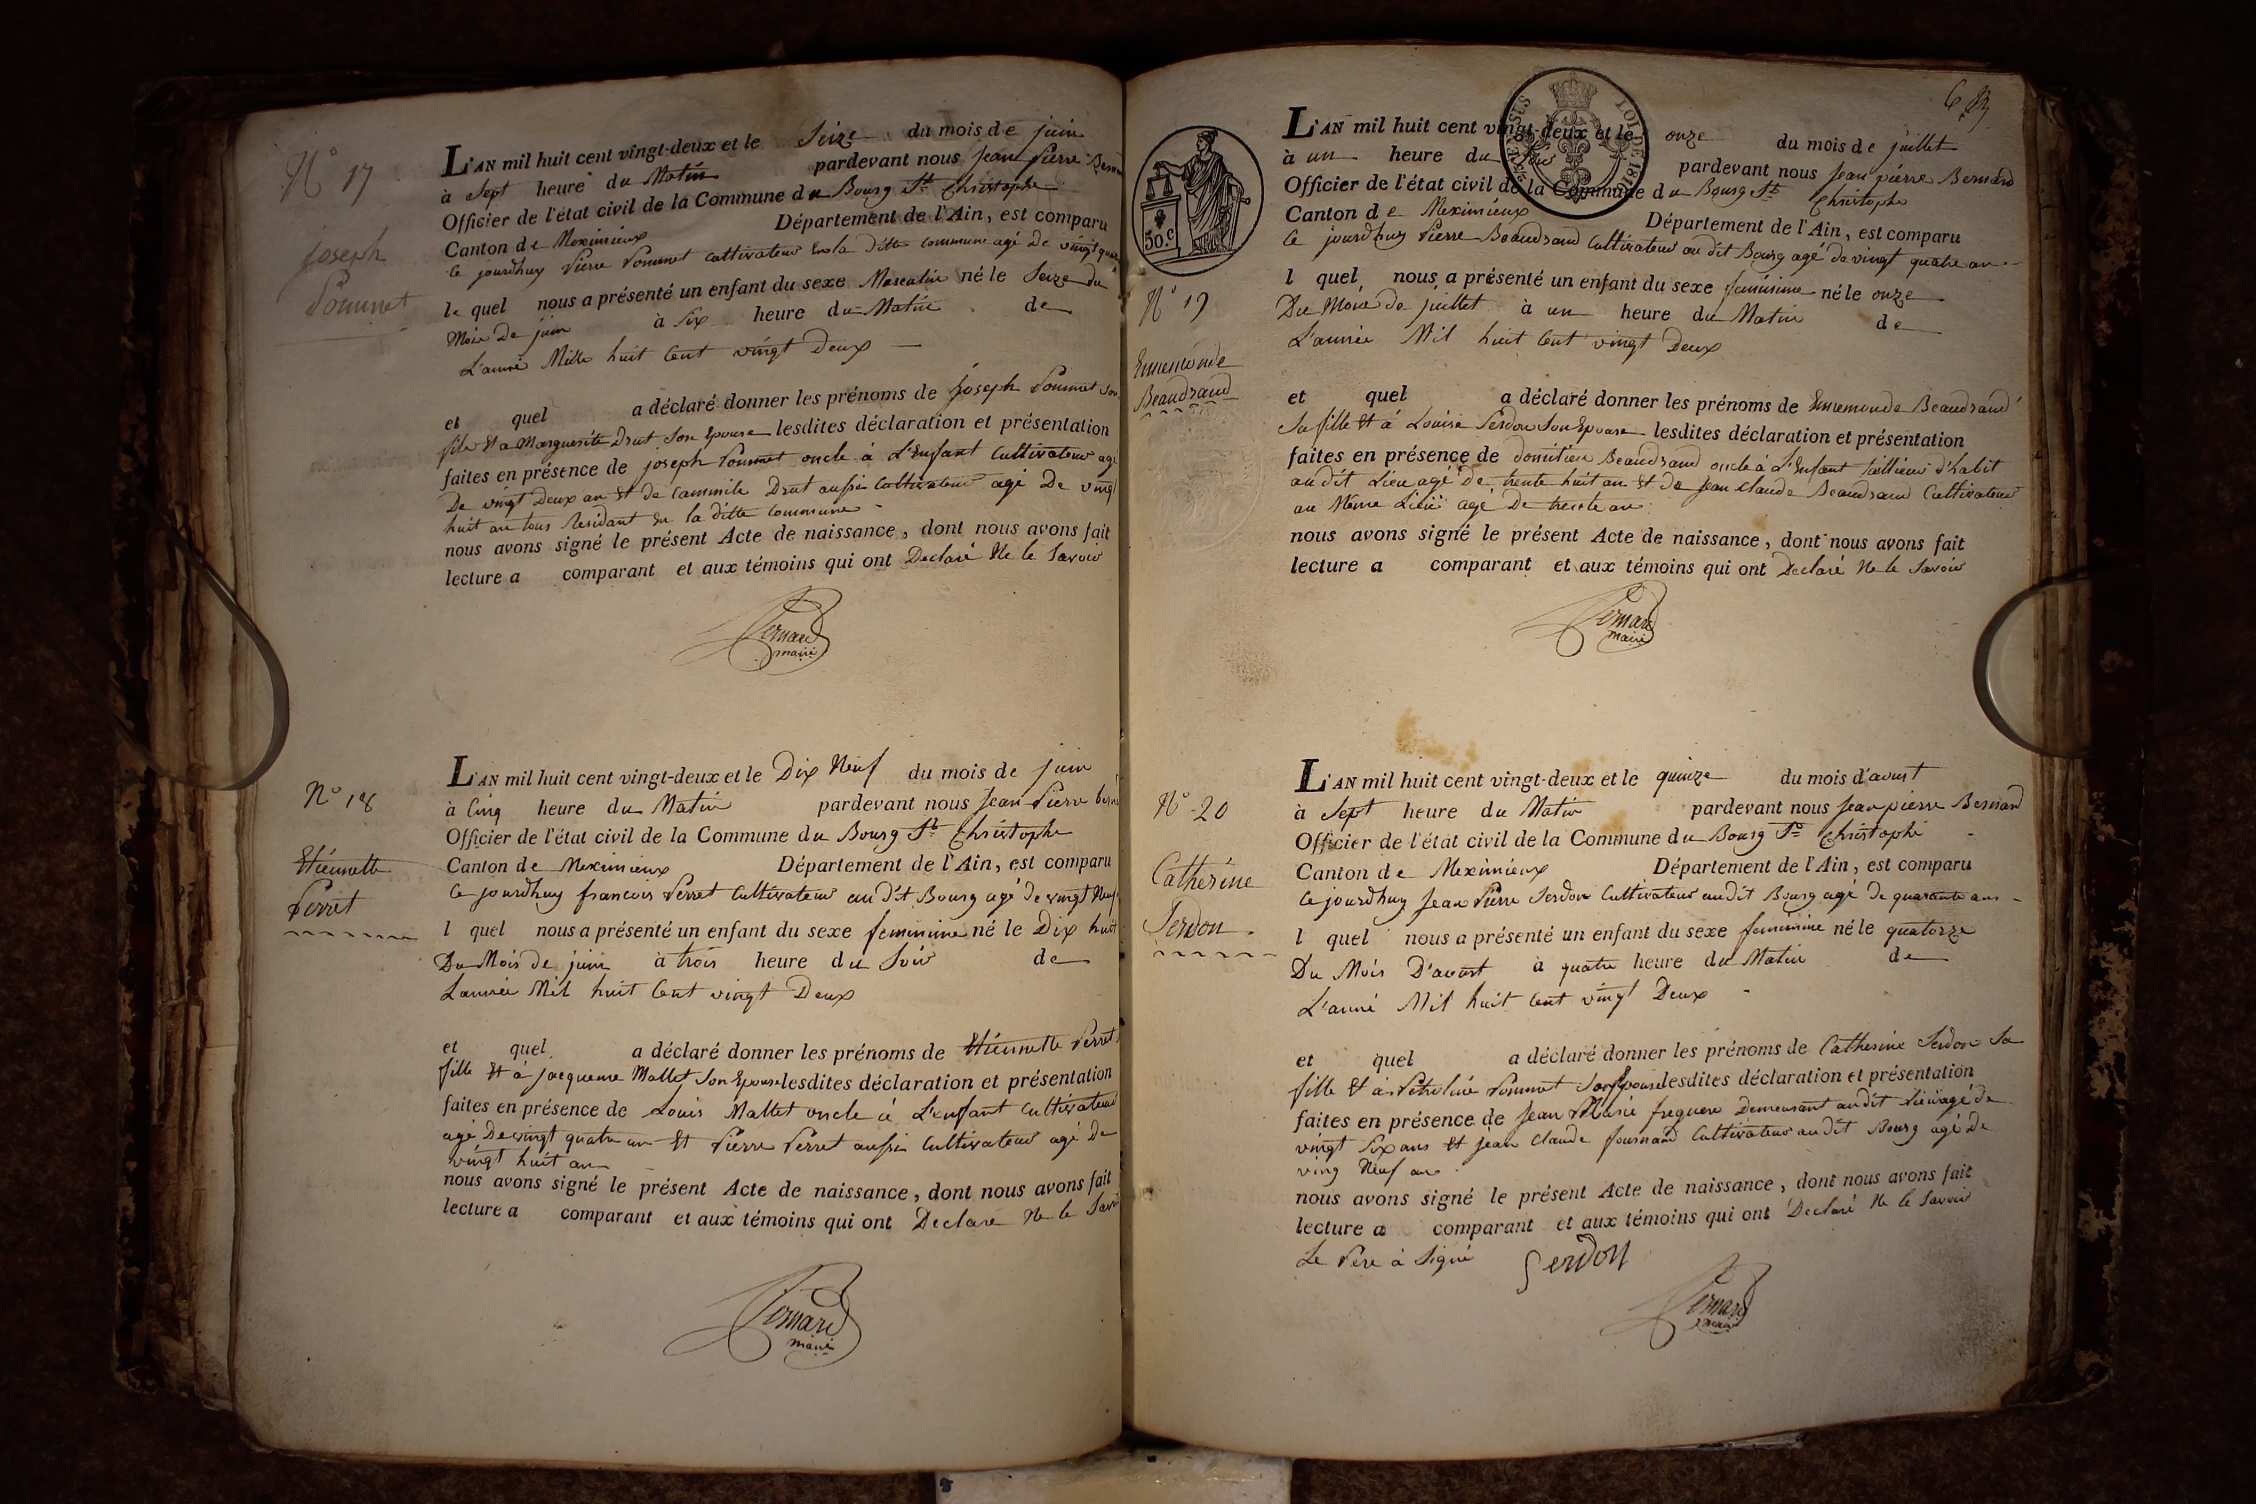 N° 17
joseph
Pommet
L'AN mil huit cent vingt-deux et le Seize du mois de juin
à Sept heure du Matin pardevant nous Jean Pierre
Officier de l'état civil de la Commune du Bourg St Christophe
Canton de Meximieux Département de l'Ain, est comparu
Ce jourdhuy Pierre Pommet cultivateur en la ditte commune agé De
le quel nous a présenté un enfant du sexe Masculin né le Seize du
Mois De juin à Six heure du Matin de
L'anné Mille huit Cent vingt Deux
et quel a déclaré donner les prénoms de joseph Pommet son
fils Et a Marguerite Drut Son Epouse lesdites déclaration et présentation
faites en présence de joseph Pommet oncle à L'Enfant Cultivateur agé
De vingt Deux an Et de Cammile Drut aussi Cultivateur agé De vingt
huit an tous Residant en la ditte Commune
nous avons signé le présent Acte de naissance, dont nous avons fait
lecture a comparant et aux témoins qui ont Declaré Ne le Savoir
Bernard
maire
N° 18
Etiennette
Perret
L'AN mil huit cent vingt-deux et le Dix Neuf du mois de juin
à Cinq heure du Matin pardevant nous Jean Pierre
Officier de l'état civil de la Commune du Bourg St Christophe
Canton de Meximieux Département de l'Ain, est comparu
Ce jourdhuy francois Perret Cultivateur au dit Bourg agé de vingt Neuf
l quel nous a présenté un enfant du sexe feminine né le Dix huit
Du Mois de juin à trois heure du Soir de
L'année Mil huit Cent vingt Deux
et quel a déclaré donner les prénoms de Etiennette Perret
fille Et à jacqueme Mallet Son Epouse lesdites déclaration et présentation
faites en présence de Louis Mallet oncle à L'enfant Cultivateur
agé De vingt quatre an Et Pierre Perret aussi Cultivateur agé De
vingt huit an
nous avons signé le présent Acte de naissance, dont nous avons fait
lecture a comparant et aux témoins qui ont Declaré Ne le Savoir
Bernard
maire
30.c
LOI DE 1816
N° 19
Ennemonde
Beaudrand
L'AN mil huit cent vingt-deux et le onze du mois de juillet
à un heure du Soir pardevant nous Jean pierre Bernard
Officier de l'état civil de la Commune du Bourg St Christophe
Canton de Meximieux Département de l'Ain, est comparu
Ce jourdhuy Pierre Beaudrand Cultivateur au dit Bourg agé de vingt quatre an
l quel nous a présenté un enfant du sexe feminine né le onze
Du Mois de juillet à un heure du Matin de
L'année Mil huit Cent vingt Deux
et quel a déclaré donner les prénoms de Ennemonde Beaudrand
Sa fille Et à Louise Serdon Son Epouse lesdites déclaration et présentation
faites en présence de domitien Beaudrand oncle à L'Enfant tallieur d'habit
au dit Lieu agé De trente huit an Et de Jean Claude Beaudrand Cultivateur
au Même Lieu agé De trente an
nous avons signé le présent Acte de naissance, dont nous avons fait
lecture a comparant et aux témoins qui ont Declaré Ne le Savoir
Bernard
maire
N° 20
Catherine
Serdon
L'AN mil huit cent vingt-deux et le quinze du mois d'avust
à Sept heure du Matin pardevant nous Jean pierre Bernard
Officier de l'état civil de la Commune du Bourg St Christophe
Canton de Meximieux Département de l'Ain, est comparu
Ce jourdhuy Jean Pierre Serdon Cultivateur au dit Bourg agé De quarante ans
l quel nous a présenté un enfant du sexe feminine né le quatorze
Du Mois D'avust à quatre heure du Matin de
L'anné Mil huit Cent vingt Deux
et quel a déclaré donner les prénoms de Catherine Serdon Sa
fille Et à Pétroline Pommet Son Epouse lesdites déclaration et présentation
faites en présence de Jean Marie freguere Demeurant au dit Lieu agé De
vingt Six ans Et Jean Claude fournand Cultivateur au dit Bourg agé De
ving Neuf an
nous avons signé le présent Acte de naissance, dont nous avons fait
lecture a comparant et aux témoins qui ont Declaré Ne le Savoir
Le Père à Signé Serdon
Bernard
maire